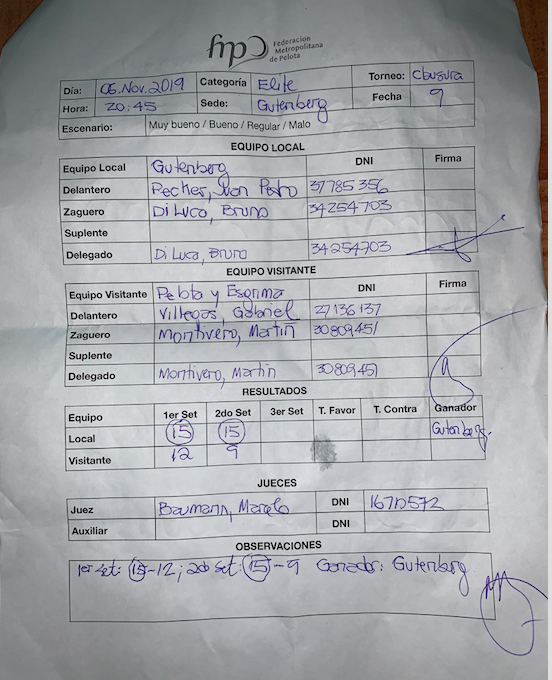 fmp Federación
Metropolitana
de Pelota
Día: 06.Nov.2019 Categoría Elite Torneo: Clausura
Hora: 20:45 Sede: Gutenberg Fecha 9
Escenario: Muy bueno / Bueno / Regular / Malo
EQUIPO LOCAL
Equipo Local Gutenberg DNI Firma
Delantero Pecher, Ivan Pedro 37785356
Zaguero Di Luca, Bruno 34254703
Suplente
Delegado Di Luca, Bruno 34254703
EQUIPO VISITANTE
Equipo Visitante Pelota y Esgrima DNI Firma
Delantero Villegas, Gabriel 27136137
Zaguero Montivero, Martin 30809451
Suplente
Delegado Montivero, Martin 30809451
RESULTADOS
Equipo 1er Set 2do Set 3er Set T. Favor T. Contra Ganador
Local 15 15 Gutenberg.
Visitante 12 9
JUECES
Juez Baumann, Marcelo DNI
Auxiliar DNI
OBSERVACIONES
1er set: 15-12; 2do set: 15-9 Ganador: Gutenberg